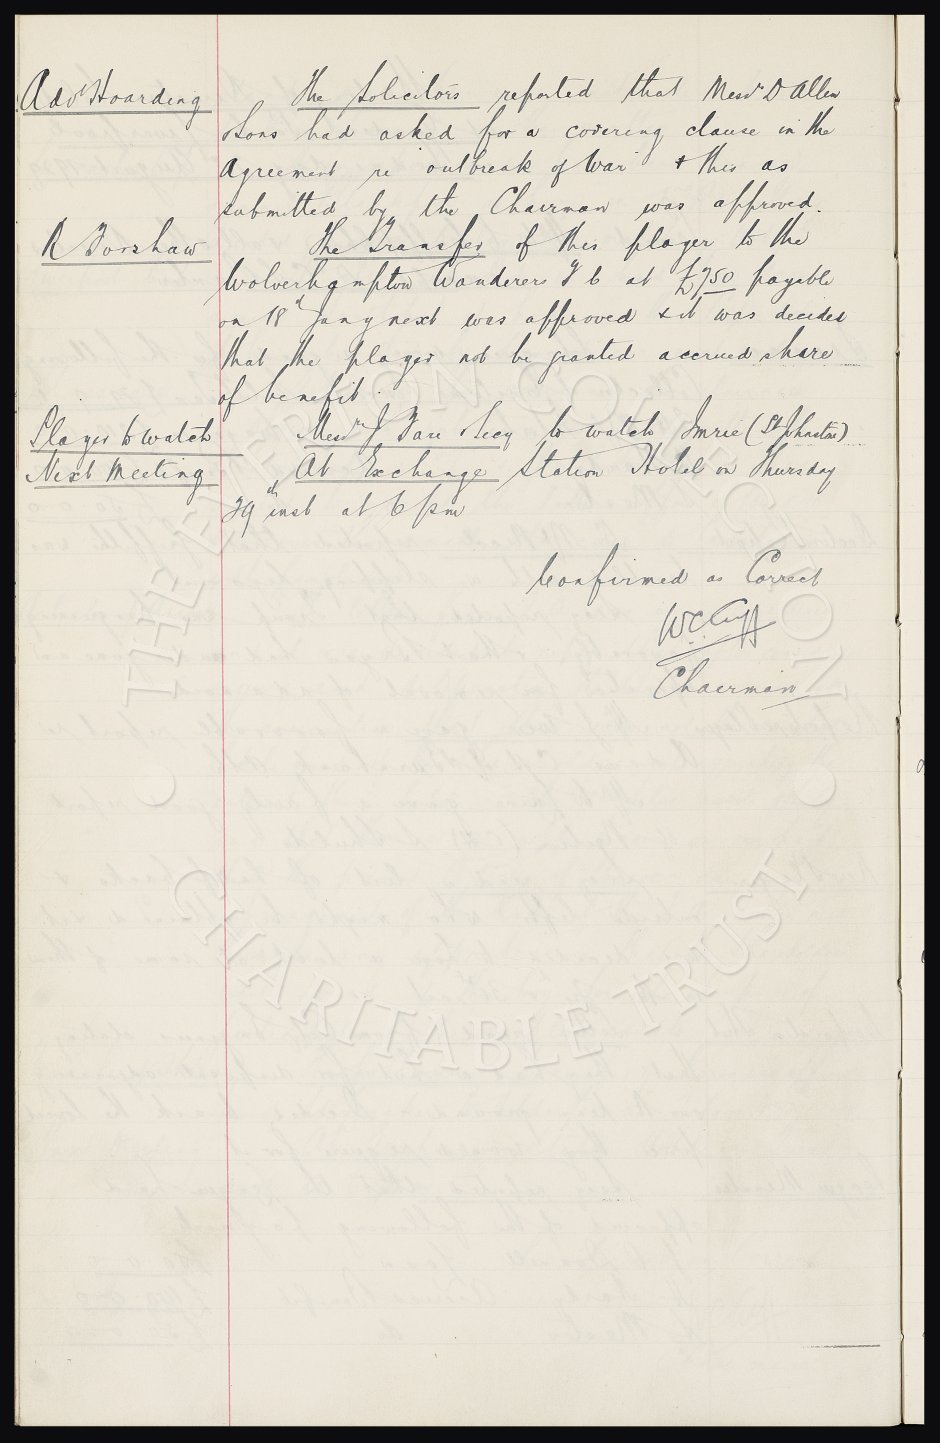 Advt Hoarding The Solicitors reported that Messrs D Allen
& Sons had asked for a covering clause in the
Agreement re outbreak of War & this as
submitted by the Chairman was approved.
R Forshaw The Transfer of this player to the
Wolverhampton Wanderers F C at £750 payable
on 18th Jany next was approved & it was decided
that the player not be granted accrued share
of benefit.
Player to watch Messrs J Fare & Secy to watch Imrie (St Johnstone)
Next Meeting At Exchange Station Hotel on Thursday
29th inst at 6 pm
Confirmed as Correct
W C Cuff
Chairman
THE EVERTON COLLECTION
CHARITABLE TRUST